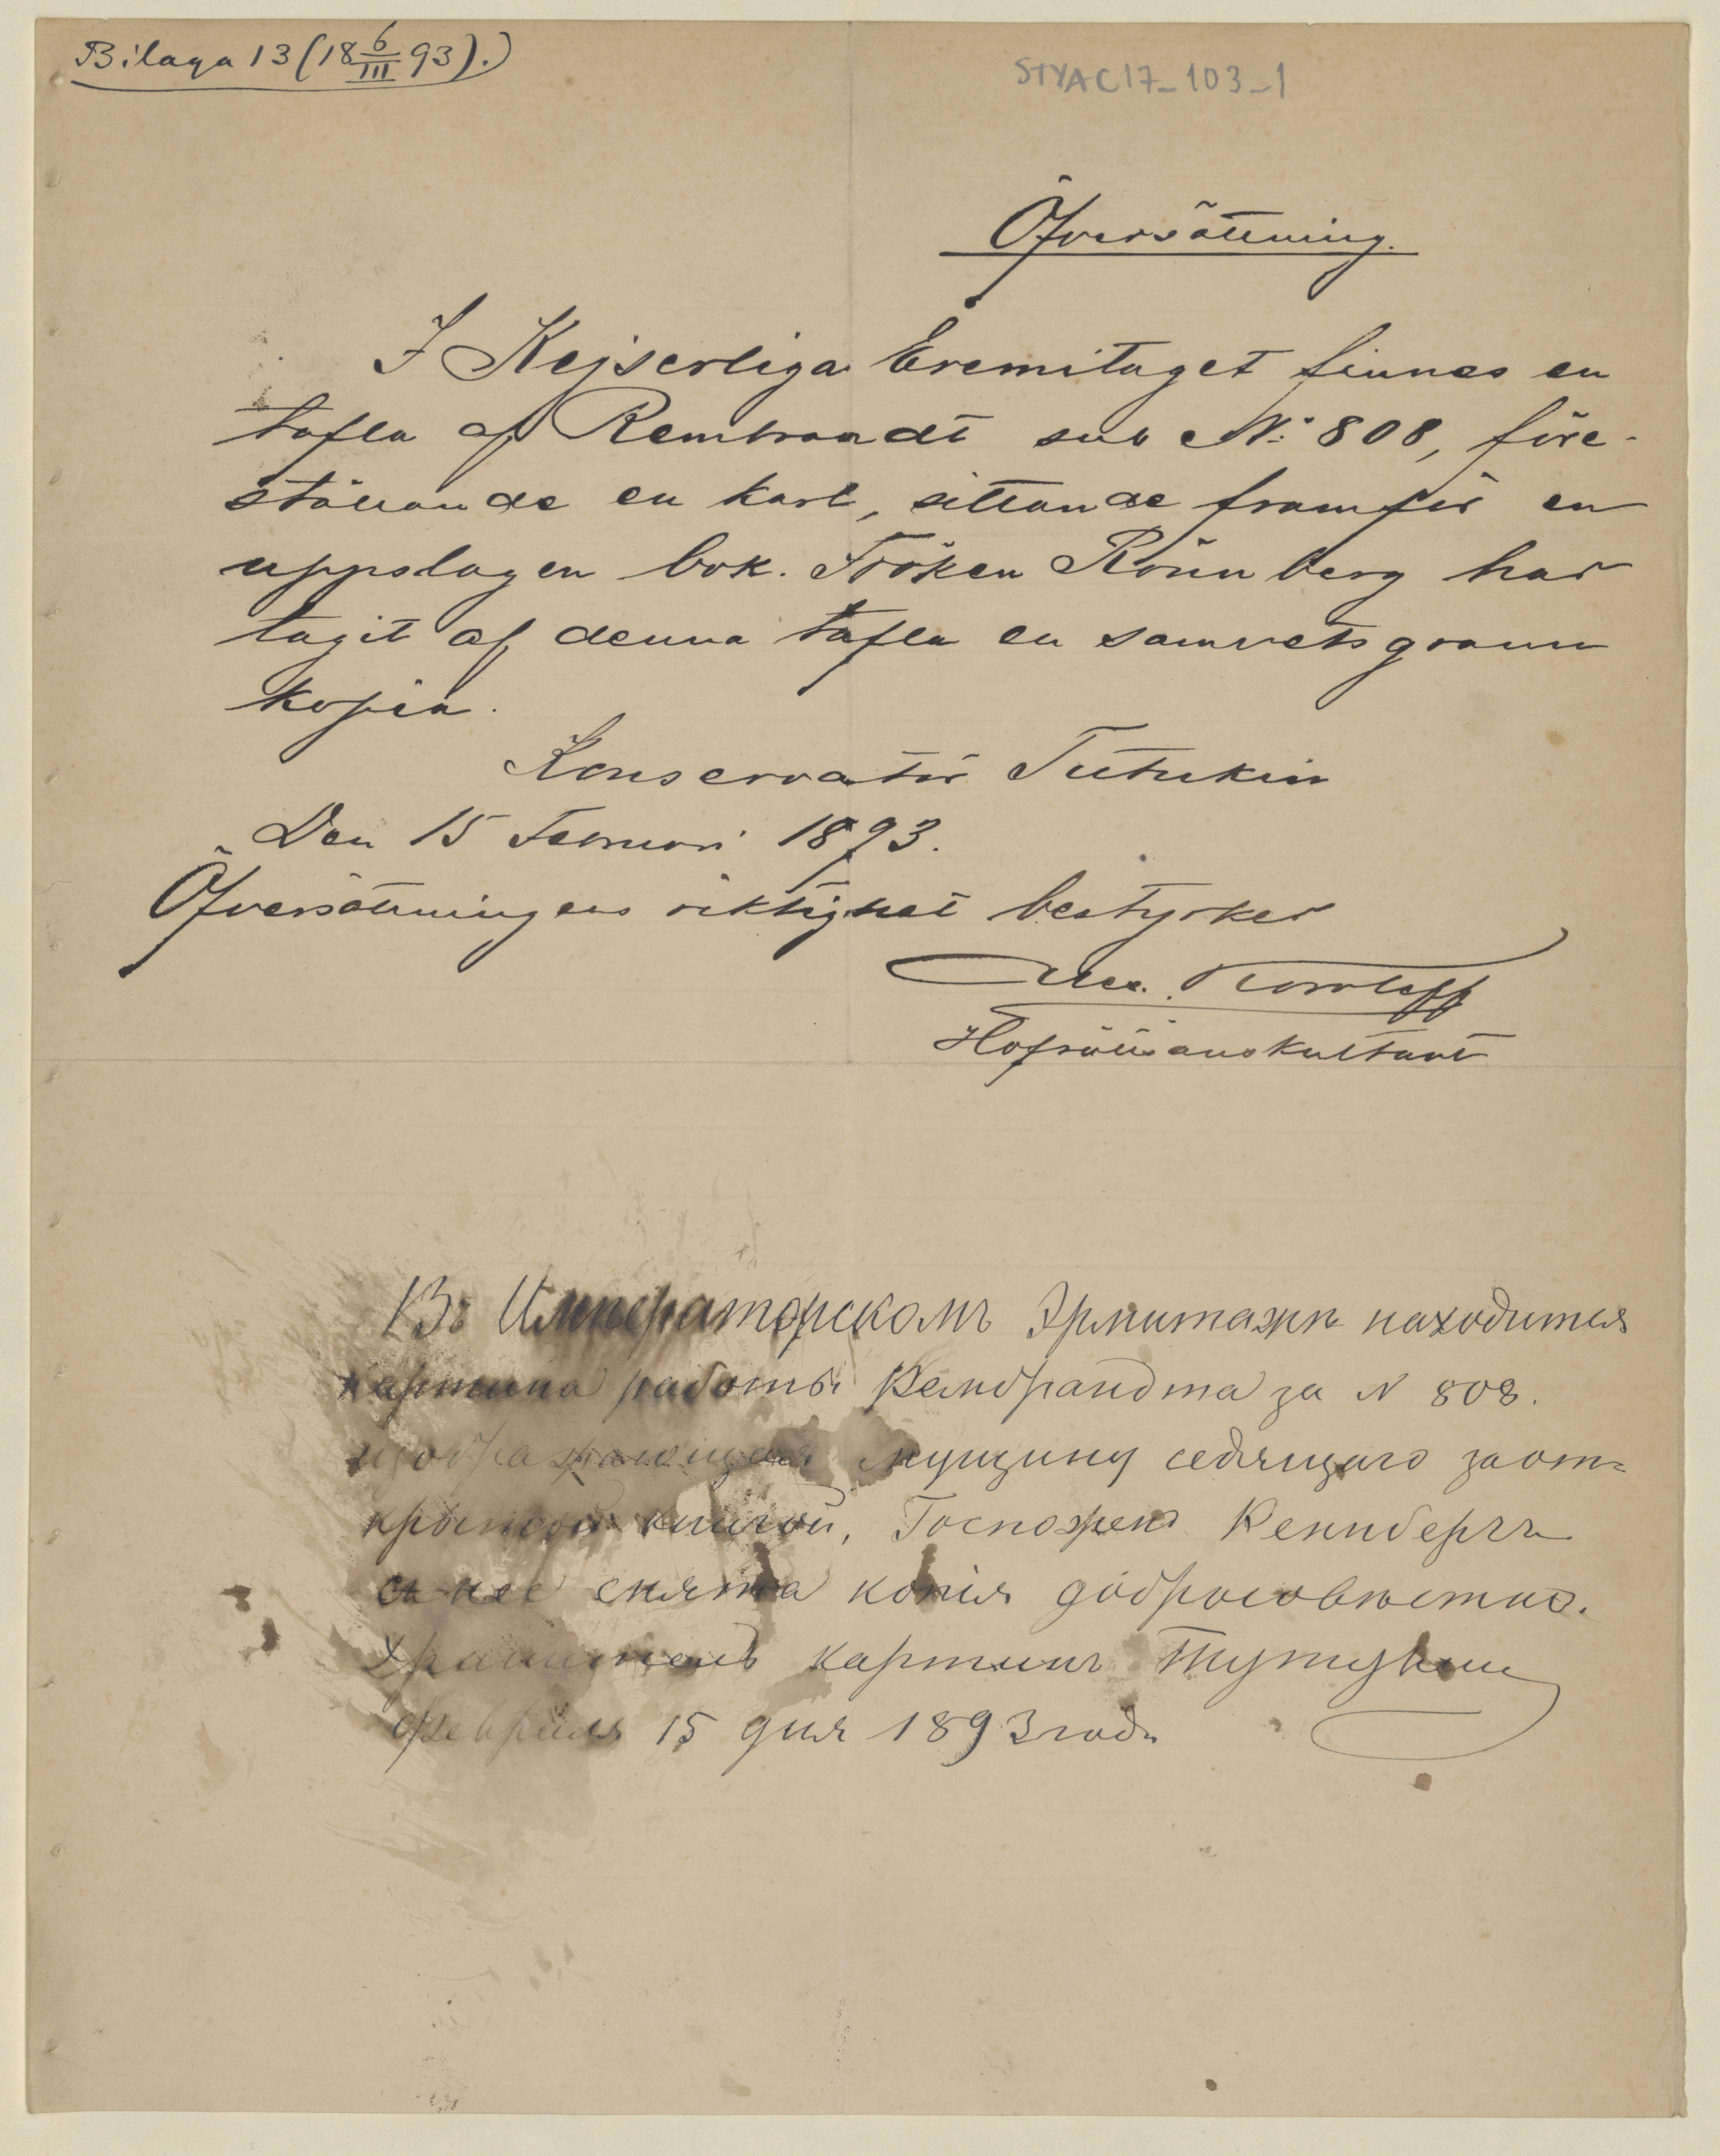 Bilaga 13 (18 6/III 93).)
STYAC17_103_1
Öfversättning.
I Kejserliga Eremitaget finnes en
tafla af Rembrandt sub No: 808, före-
ställande en karl, sittande framför en
uppslagen bok. Fröken Rönnberg har
tagit af denna tafla en samvetsgrann
kopia.
Konservator Tutukin
Den 15 Februari 1893.
Öfversättningens riktighet bestyrker
Alex.
Hofrättsauskultant
Въ Императорскомъ Эрмитажѣ находится
картина работы Рембрандта за N 808.
изображающая мущину седящаго заот=
крытой книгой, Госпожею Реннбергъ
съ нее снята копія добросовѣстно.
Хранитель картинъ Тутукин
Февраля 15 дня 1893 года